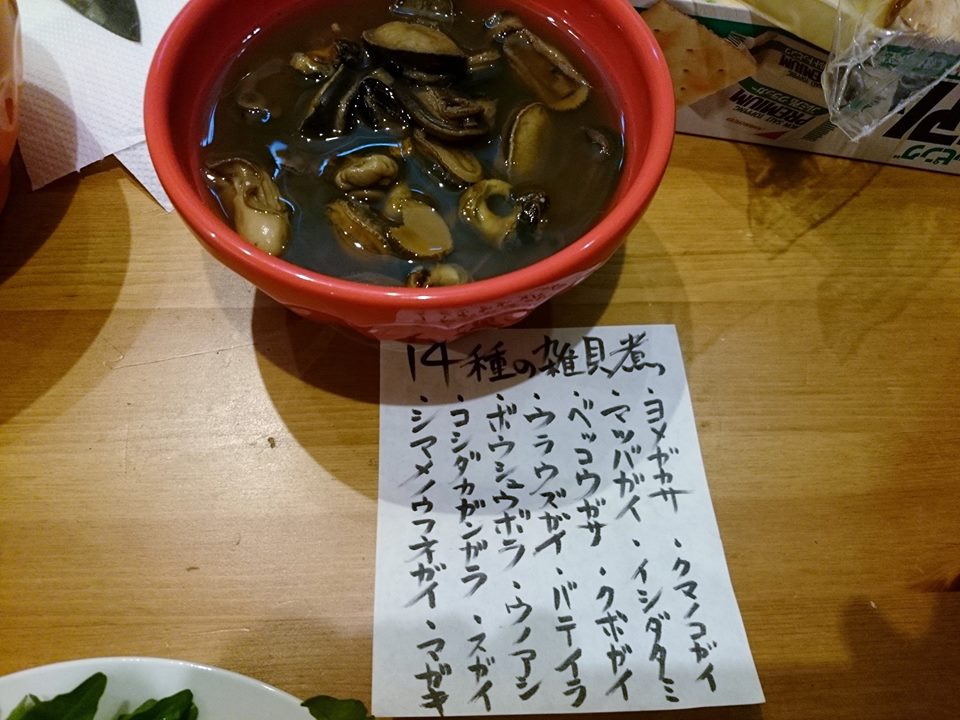 14種の雑貝煮
・ヨメガカサ
・マツバガイ
・ベッコウガサ
・ウラウズガイ
・ボウシュウボラ
・コシダカガンガラ
・シマメノウフネガイ
・クマノコガイ
・イシダタミ
・クボガイ
・バテイラ
・ウノアシ
・スガイ
・マガキ
PREMIUM
PREMIUM